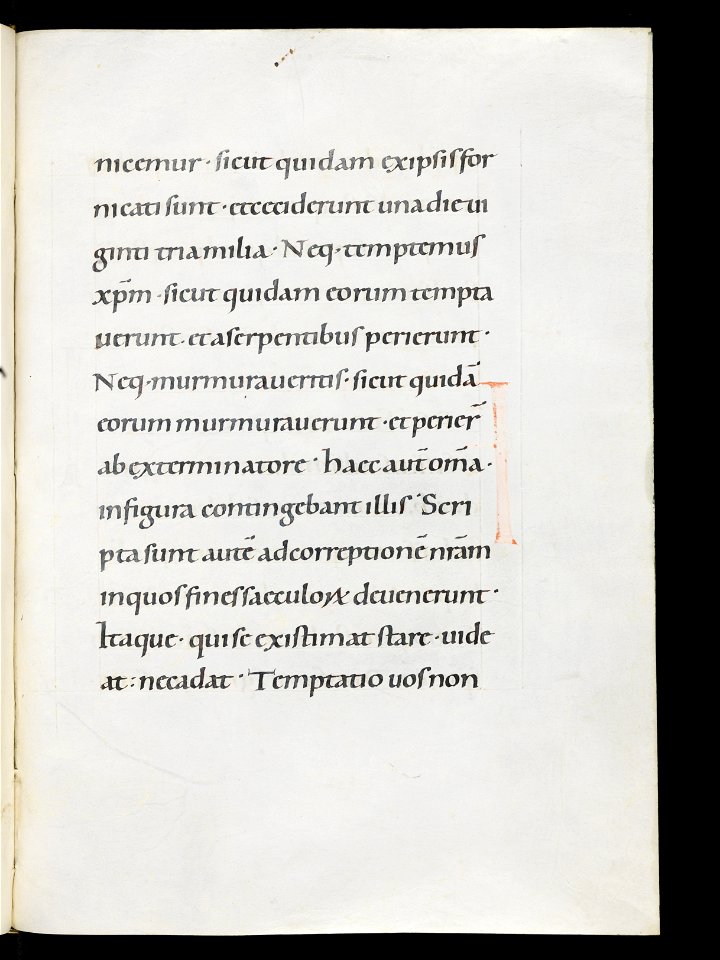 nicemur · sicut quidam exipsis for
nicati sunt · etceciderunt una die ui
ginti tria milia · Neq· temptemus
xp̄m · sicut quidam eorum tempta
uerunt · et aserpentibus perierunt ·
Neq· murmuraueritis · sicut quidā
eorum murmurauerunt · et perier̄
ab exterminatore · haec aut̄ om̄a ·
in figura contingebant illis · Scri
pta sunt autē ad correptionē nr̄am
in quos fines saeculoꝝ deuenerunt ·
Itaque · qui se existimat stare · uide
at : ne cadat · Temptatio uos non